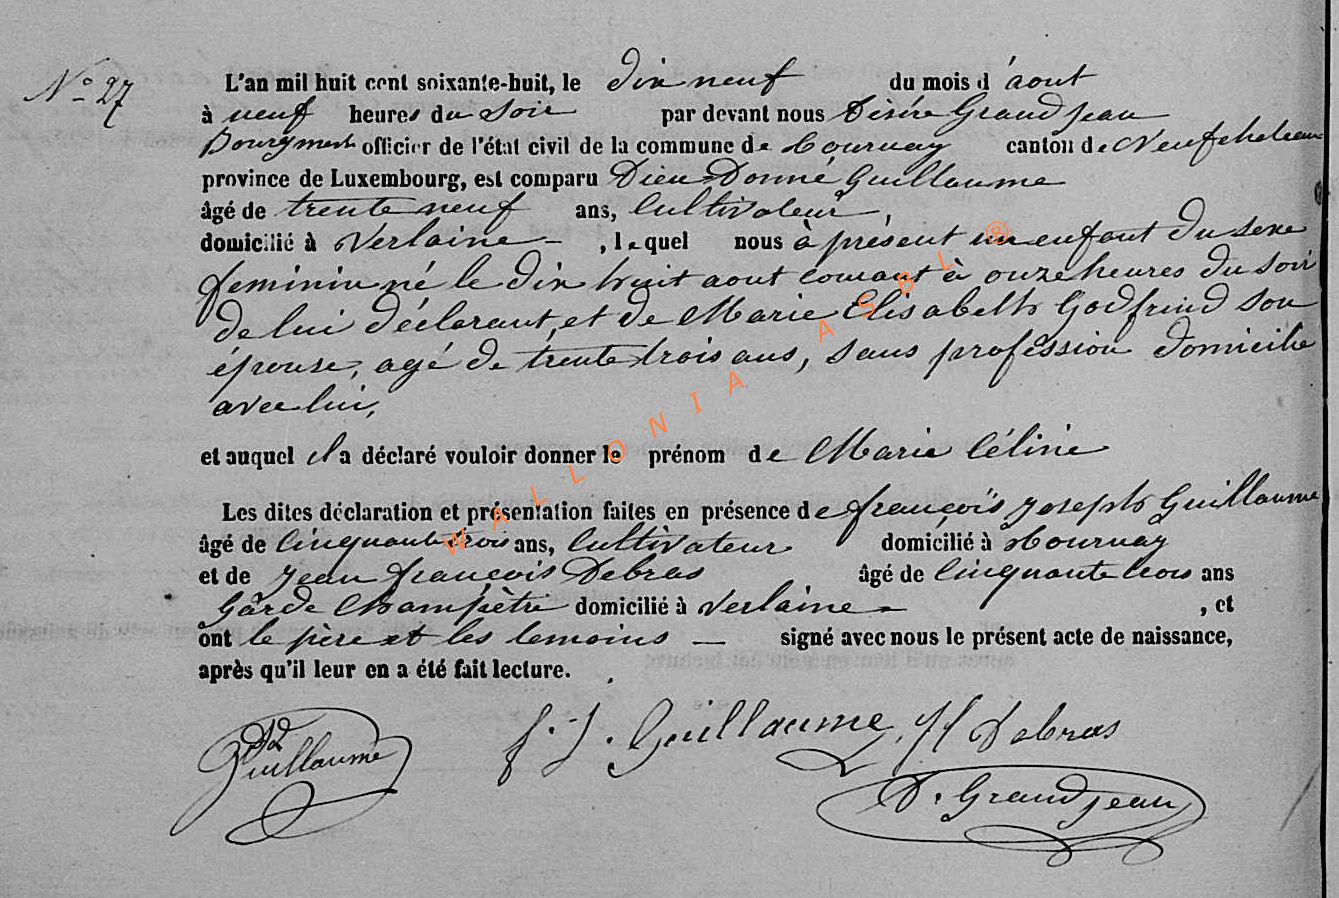 N° 27
L'an mil huit cent soixante-huit, le dix neuf du mois d'aout
à neuf heures du soir par devant nous Désiré Grandjean
Bourgmestre officier de l'état civil de la commune de Tournay canton de Neufchateau
province de Luxembourg, est comparu Dieu-Donné Guillaume
âgé de trente neuf ans, Cultivateur,
domicilié à Verlaine – , lequel nous à présent un enfant du sexe
feminin né le dix huit aout courant à onze heures du soir
de lui déclarant, et de Marie Elisabeth Godfrind son
épouse, agé de trente trois ans, sans profession domicilie
avec lui,
et auquel il a déclaré vouloir donner le prénom de Marie Céline
Les dites déclaration et présentation faites en présence de françois Joseph Guillaume
âgé de Cinquante trois ans, Cultivateur domicilié à Tournay
et de Jean françois Debras âgé de Cinquante trois ans
Gârde Champètre domicilié à Verlaine – , et
ont le père et les temoins – signé avec nous le présent acte de naissance,
après qu'il leur en a été fait lecture.
Dd Guillaume f. J. Guillaume, J f Debras
D. Grandjean
WALLONIA ASBL ®